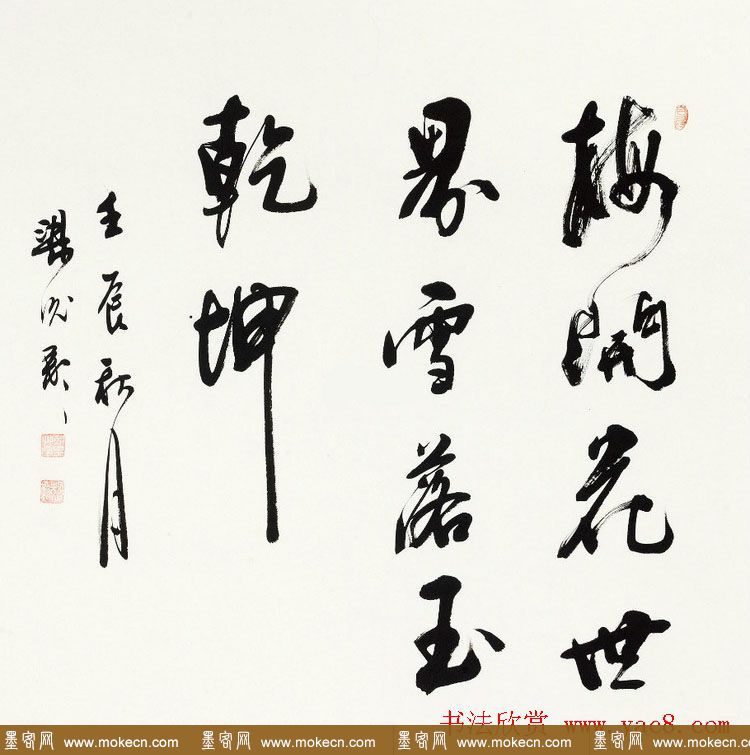 梅開花世
界雪落玉
乾坤
壬辰秋月
书法欣赏 www.yac8.com
墨客网 www.mokecn.com 墨客网 www.mokecn.com 墨客网 www.mokecn.com 墨客网 www.mokecn.com